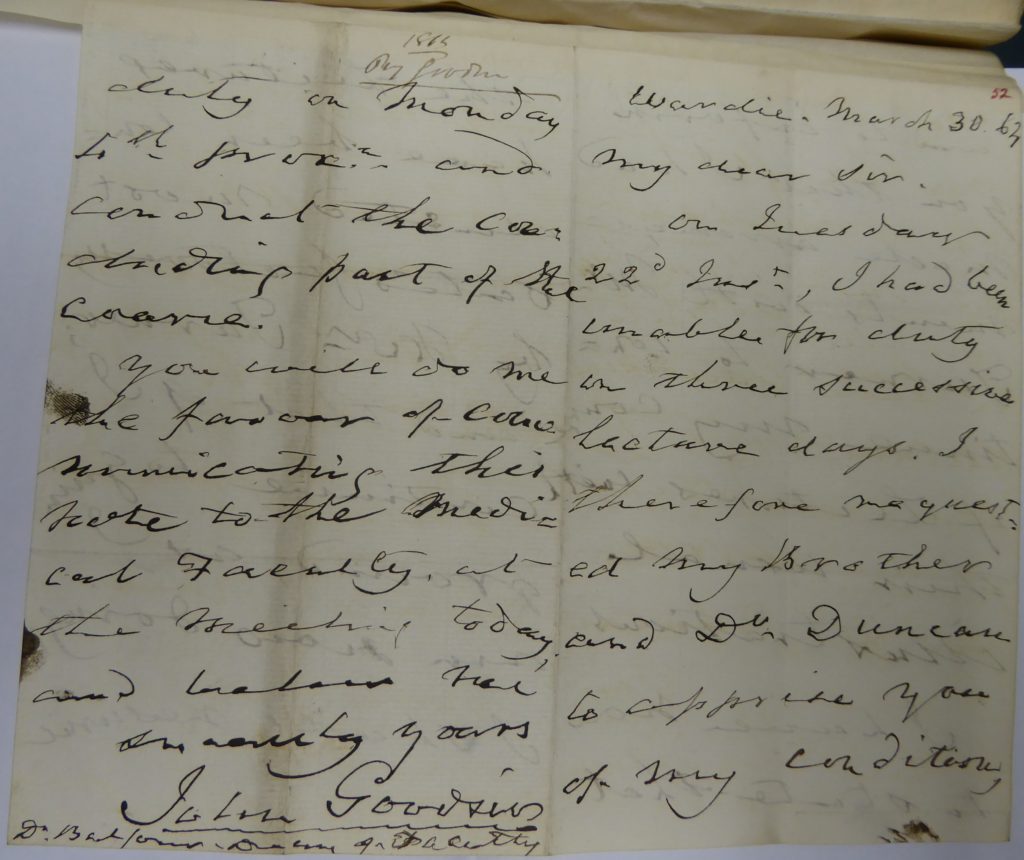 52
Wardie. March 30. 64
My dear Sir.
On Tuesday
22d Inst, I had been
unable for duty
on three successive
lecture days. I
therefore request=
ed my Brother
and Dr. Duncan
to apprise you
of my condition,
duty on Monday
4th proxo. and
conduct the con=
cluding part of the
course.
You will do me
the favour of com
municating this
note to the Medi=
cal Faculty, at
the Meeting today,
and believe me
sincerely yours
John Goodsir
Dr. Balfour. Dean of Faculty